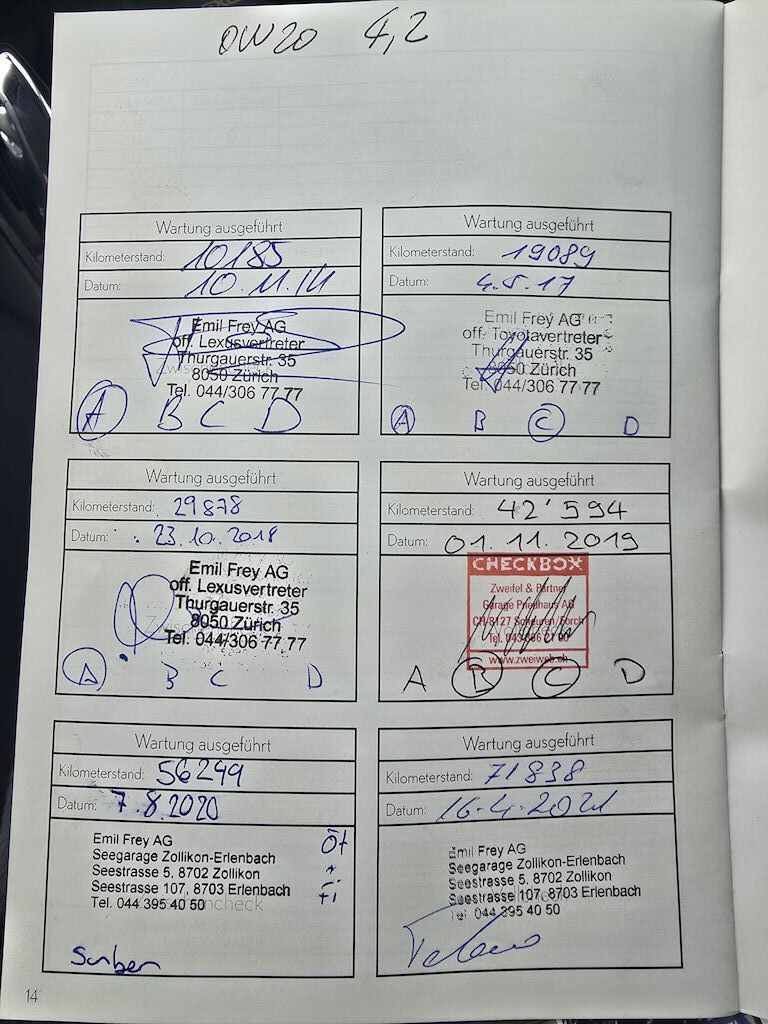 OW20 4,2
Wartung ausgeführt
Kilometerstand: 10185
Datum: 10.11.14
Emil Frey AG
off. Lexusvertreter
Thurgauerstr. 35
8050 Zürich
Tel. 044/306 77 77
A B C D
Wartung ausgeführt
Kilometerstand: 19089
Datum: 4.5.17
Emil Frey AG
off. Toyotavertreter
Thurgauerstr. 35
8050 Zürich
Tel. 044/306 77 77
A B C D
Wartung ausgeführt
Kilometerstand: 29878
Datum: 23.10.2018
Emil Frey AG
off. Lexusvertreter
Thurgauerstr. 35
8050 Zürich
Tel. 044/306 77 77
A B C D
Wartung ausgeführt
Kilometerstand: 42'594
Datum: 01.11.2019
CHECKBOX
Zweifel & Partner
Garage Pneuhaus AG
CH-8127 Scheuren/Forch
www.zweiweb.ch
A B C D
Wartung ausgeführt
Kilometerstand: 56249
Datum: 7.8.2020
Emil Frey AG
Seegarage Zollikon-Erlenbach
Seestrasse 5, 8702 Zollikon
Seestrasse 107, 8703 Erlenbach
Tel. 044 395 40 50
Öf
Fi
Wartung ausgeführt
Kilometerstand: 71838
Datum: 16.4.2021
Emil Frey AG
Seegarage Zollikon-Erlenbach
Seestrasse 5, 8702 Zollikon
Seestrasse 107, 8703 Erlenbach
Tel. 044 395 40 50
14